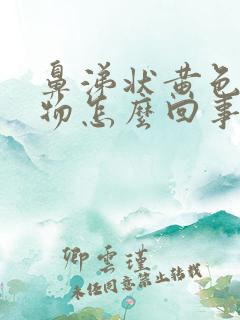 鼻涕状黄色
物怎麼回事
卿雲瑾
未经同意禁止转载